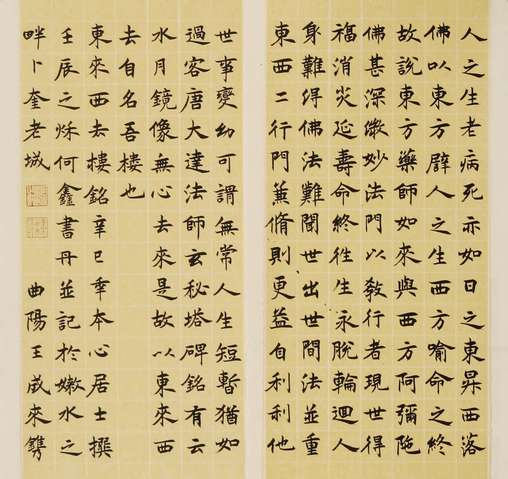 人之生老病死亦如日之東昇西落
佛以東方辟人之生西方喻命之終
故說東方藥師如來與西方阿彌陁
佛甚深微妙法門以教行者現世得
福消災延壽命終往生永脫輪迴人
身難得佛法難聞世出世間法並重
東西二行門兼脩則更益自利利他
世事變幻可謂無常人生短暫猶如
過客唐大達法師玄秘塔碑銘有云
水月鏡像無心去來是故以東來西
去自名吾樓也
東來西去樓銘辛巳秊本心居士撰
壬辰之秌何鑫書丹並記於嫩水之
畔卜奎老城 曲陽王成來鐫